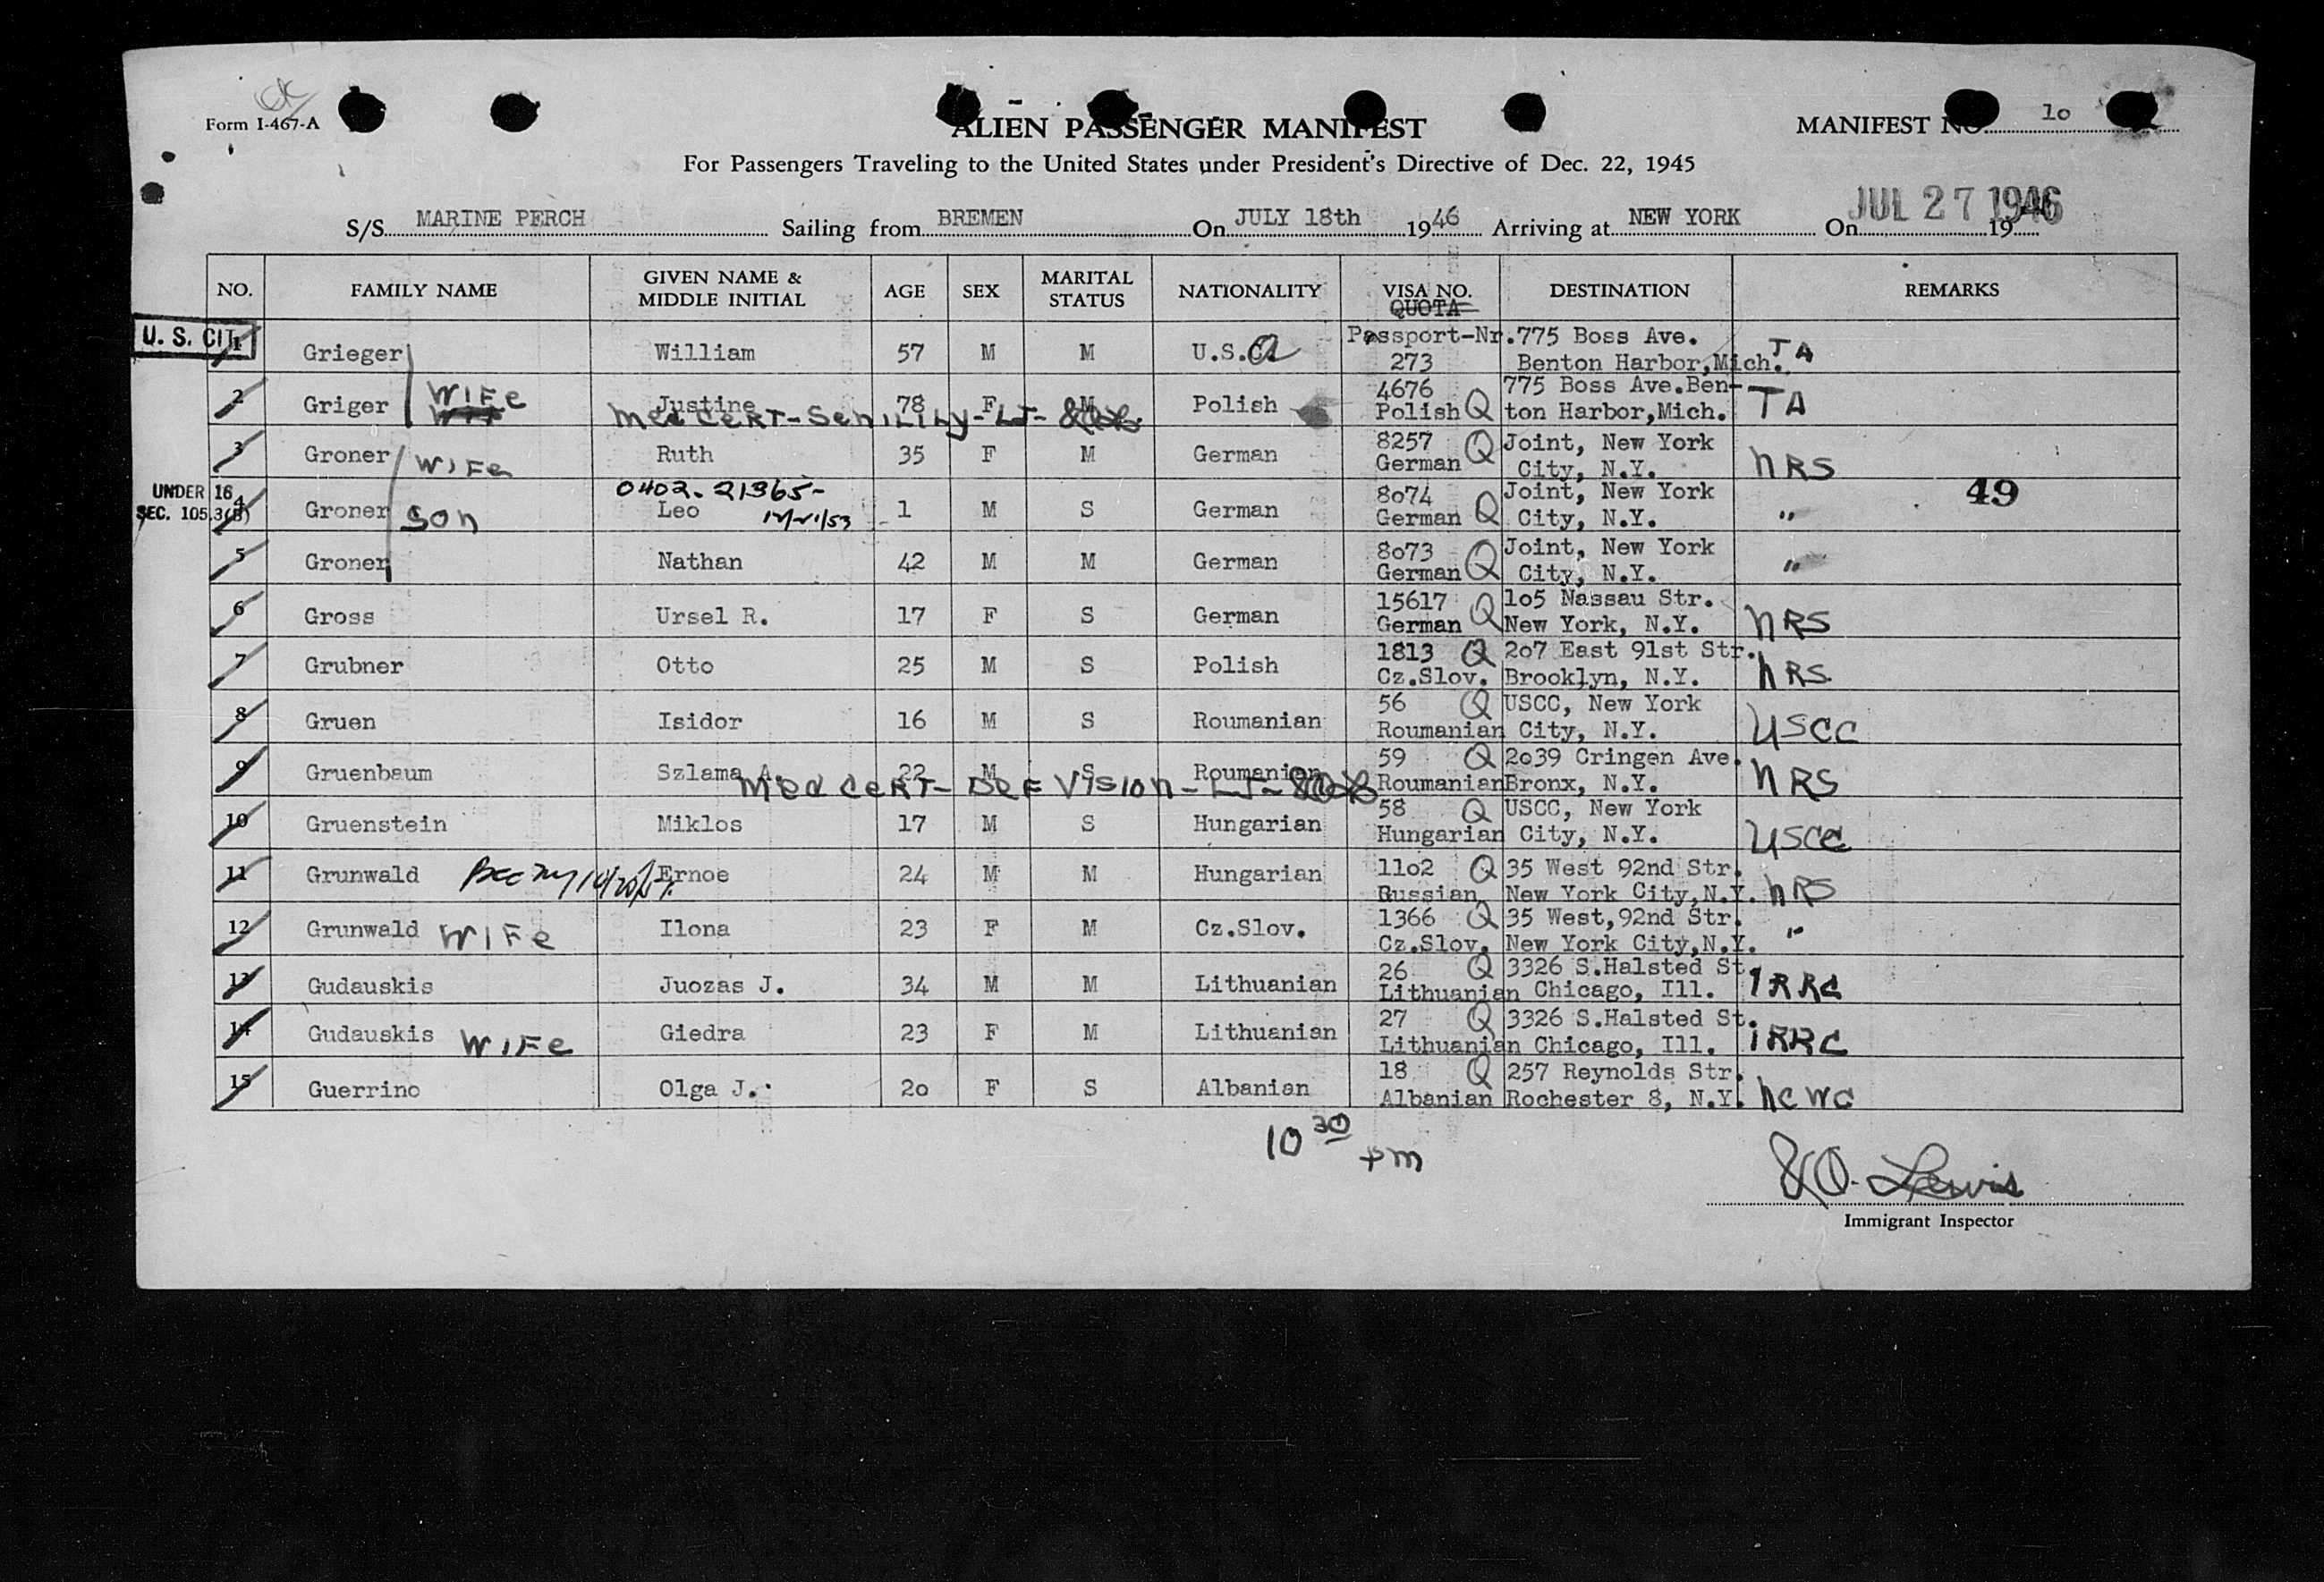 Form I-467-A
ALIEN PASSENGER MANIFEST
MANIFEST NO. 10
For Passengers Traveling to the United States under President's Directive of Dec. 22, 1945
S/S MARINE PERCH Sailing from BREMEN On JULY 18th 1946 Arriving at NEW YORK On JUL 27 1946 19
NO. FAMILY NAME GIVEN NAME & MIDDLE INITIAL AGE SEX MARITAL STATUS NATIONALITY VISA NO. QUOTA DESTINATION REMARKS
U. S. CIT.
Passport-Nr. 775 Boss Ave.
1 Grieger William 57 M M U.S.A TA
273 Benton Harbor,Mich.
4676 775 Boss Ave.Ben-
2 Griger WIFe Justine 78 F M Polish TA
Polish Q ton Harbor,Mich.
Med CeRT-SeniLiTy-LT-
8257 Q Joint, New York
3 Groner WIFe Ruth 35 F M German NRS
German City, N.Y.
UNDER 16
SEC. 105.3(B)
0402-21365-
8074 Joint, New York 49
4 Groner Son Leo 12/21/53 1 M S German "
German Q City, N.Y.
8073 Joint, New York
5 Groner Nathan 42 M M German "
German Q City, N.Y.
15617 Q 1o5 Nassau Str.
6 Gross Ursel R. 17 F S German NRS
German New York, N.Y.
1813 Q 2o7 East 91st Str.
7 Grubner Otto 25 M S Polish NRS
Cz.Slov. Brooklyn, N.Y.
56 Q USCC, New York
8 Gruen Isidor 16 M S Roumanian USCC
Roumanian City, N.Y.
59 Q 2o39 Cringen Ave.
9 Gruenbaum Szlama A. 22 M S Roumanian NRS
Roumanian Bronx, N.Y.
Med CeRT- DeF Vision-LT-
58 Q USCC, New York
10 Gruenstein Miklos 17 M S Hungarian USCC
Hungarian City, N.Y.
11o2 Q 35 West 92nd Str.
11 Grunwald Ernoe 24 M M Hungarian NRS
Russian New York City,N.Y.
1366 Q 35 West,92nd Str.
12 Grunwald WIFe Ilona 23 F M Cz.Slov. "
Cz.Slov. New York City,N.Y.
26 Q 3326 S.Halsted St.
13 Gudauskis Juozas J. 34 M M Lithuanian IRRC
Lithuanian Chicago, Ill.
27 Q 3326 S.Halsted St.
14 Gudauskis WIFe Giedra 23 F M Lithuanian IRRC
Lithuanian Chicago, Ill.
18 Q 257 Reynolds Str.
15 Guerrino Olga J. 2o F S Albanian NCWC
Albanian Rochester 8, N.Y.
10 30
pm
Lewis
Immigrant Inspector